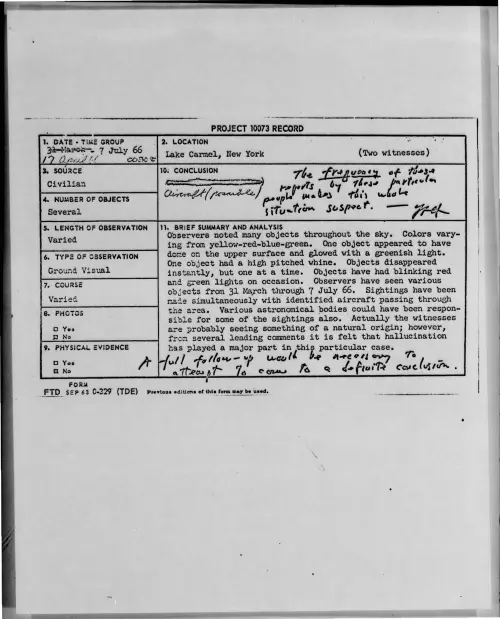 PROJECT 10073 RECORD
1. DATE - TIME GROUP
31 March - 7 July 66
17 April
2. LOCATION
Lake Carmel, New York (Two witnesses)
3. SOURCE
Civilian
4. NUMBER OF OBJECTS
Several
10. CONCLUSION
Aircraft (possible)
The frequency of these
reports by these particular
people makes this whole
situation suspect.
5. LENGTH OF OBSERVATION
Varied
6. TYPE OF OBSERVATION
Ground Visual
7. COURSE
Varied
8. PHOTOS
□ Yes
☒ No
9. PHYSICAL EVIDENCE
□ Yes
☒ No
11. BRIEF SUMMARY AND ANALYSIS
Observers noted many objects throughout the sky. Colors vary-
ing from yellow-red-blue-green. One object appeared to have
dome on the upper surface and glowed with a greenish light.
One object had a high pitched whine. Objects disappeared
instantly, but one at a time. Objects have had blinking red
and green lights on occasion. Observers have seen various
objects from 31 March through 7 July 66. Sightings have been
made simultaneously with identified aircraft passing through
the area. Various astronomical bodies could have been respon-
sible for some of the sightings also. Actually the witnesses
are probably seeing something of a natural origin; however,
from several leading comments it is felt that hallucination
has played a major part in this particular case.
A full follow-up would be necessary to
attempt to come to a definite conclusion.
FORM
FTD SEP 63 0-329 (TDE) Previous editions of this form may be used.